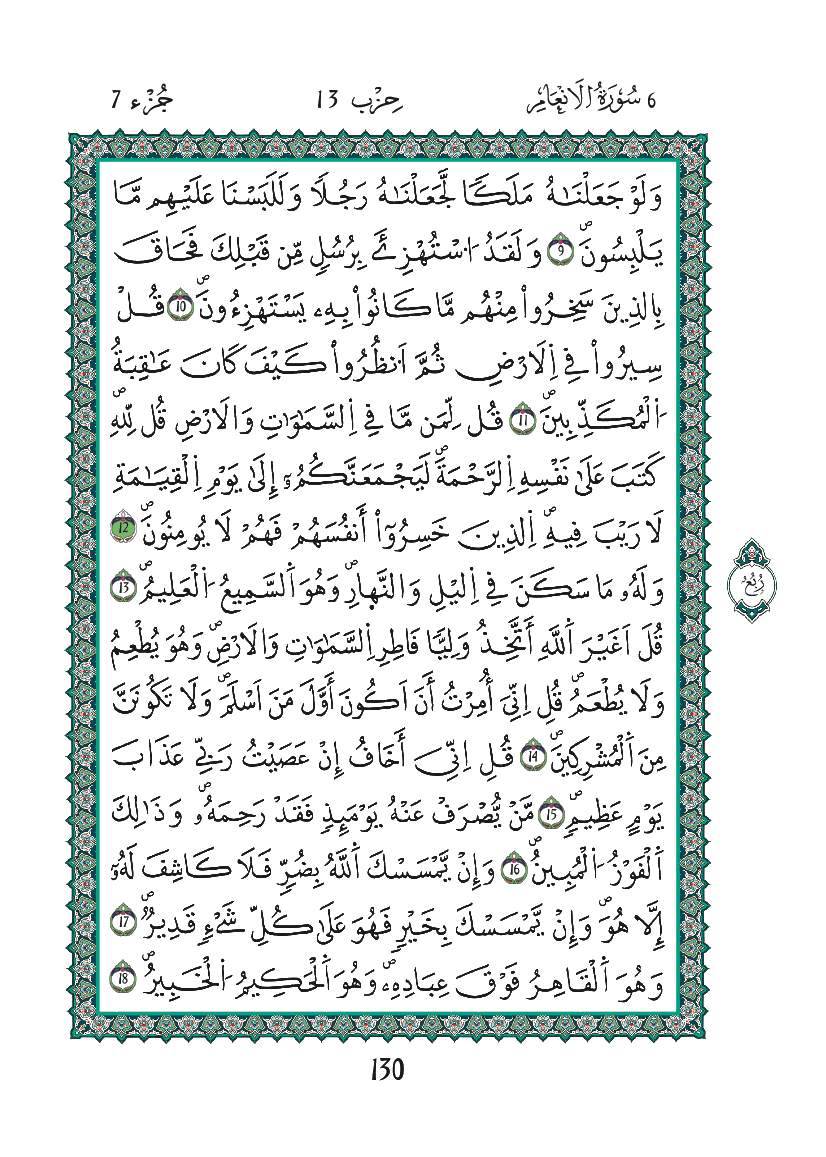 6 سُورَةُ الَانْعَامِ حِزْب 13 جُزْء 7
وَلَوْ جَعَلْنَٰهُ مَلَكًا لَّجَعَلْنَٰهُ رَجُلًا وَلَلَبَسْنَا عَلَيْهِم مَّا
يَلْبِسُونَۖ 9 وَلَقَدُ اَ۟سْتُهْزِئَ بِرُسُلٍ مِّن قَبْلِكَ فَحَاقَ
بِالذِينَ سَخِرُواْ مِنْهُم مَّا كَانُواْ بِهِۦ يَسْتَهْزِءُونَۖ 10 قُلْ
سِيرُواْ فِے اِ۬لَارْضِ ثُمَّ اَ۟نظُرُواْ كَيْفَ كَانَ عَٰقِبَةُ
اُ۬لْمُكَذِّبِينَۖ 11 قُل لِّمَن مَّا فِے اِ۬لسَّمَٰوَٰتِ وَالَارْضِ قُل لِلهِۖ
كَتَبَ عَلَىٰ نَفْسِهِ اِ۬لرَّحْمَةَۖ لَيَجْمَعَنَّكُمُۥٓ إِلَىٰ يَوْمِ اِ۬لْقِيَٰمَةِ
لَا رَيْبَ فِيهِۖ اِ۬لذِينَ خَسِرُوٓاْ أَنفُسَهُمْ فَهُمْ لَا يُومِنُونَۖ 12
وَلَهُۥ مَا سَكَنَ فِے اِ۬ليْلِ وَالنَّهارِۖ وَهُوَ اَ۬لسَّمِيعُ اُ۬لْعَلِيمُۖ 13
قُلَ اَغَيْرَ اَ۬للَّهِ أَتَّخِذُ وَلِيّٗا فَاطِرِ اِ۬لسَّمَٰوَٰتِ وَالَارْضِۖ وَهُوَ يُطْعِمُ
وَلَا يُطْعَمُۖ قُلِ اِنِّيَ أُمِرْتُ أَنَ اَكُونَ أَوَّلَ مَنَ اَسْلَمَۖ وَلَا تَكُونَنَّ
مِنَ اَ۬لْمُشْرِكِينَۖ 14 قُلِ اِنِّيَ أَخَافُ إِنْ عَصَيْتُ رَبِّے عَذَابَ
يَوْمٍ عَظِيمٖۖ 15 مَّنْ يُّصْرَفْ عَنْهُ يَوْمَئِذٖ فَقَدْ رَحِمَهُۥۖ وَذَٰلِكَ
اَ۬لْفَوْزُ اُ۬لْمُبِينُۖ 16 وَإِنْ يَّمْسَسْكَ اَ۬للَّهُ بِضُرٍّ فَلَا كَاشِفَ لَهُۥٓ
إِلَّا هُوَۖ وَإِنْ يَّمْسَسْكَ بِخَيْرٖ فَهُوَ عَلَىٰ كُلِّ شَےْءٖ قَدِيرٞۖ 17
وَهُوَ اَ۬لْقَاهِرُ فَوْقَ عِبَادِهِۦۖ وَهُوَ اَ۬لْحَكِيمُ اُ۬لْخَبِيرُۖ 18
رُبُع
130